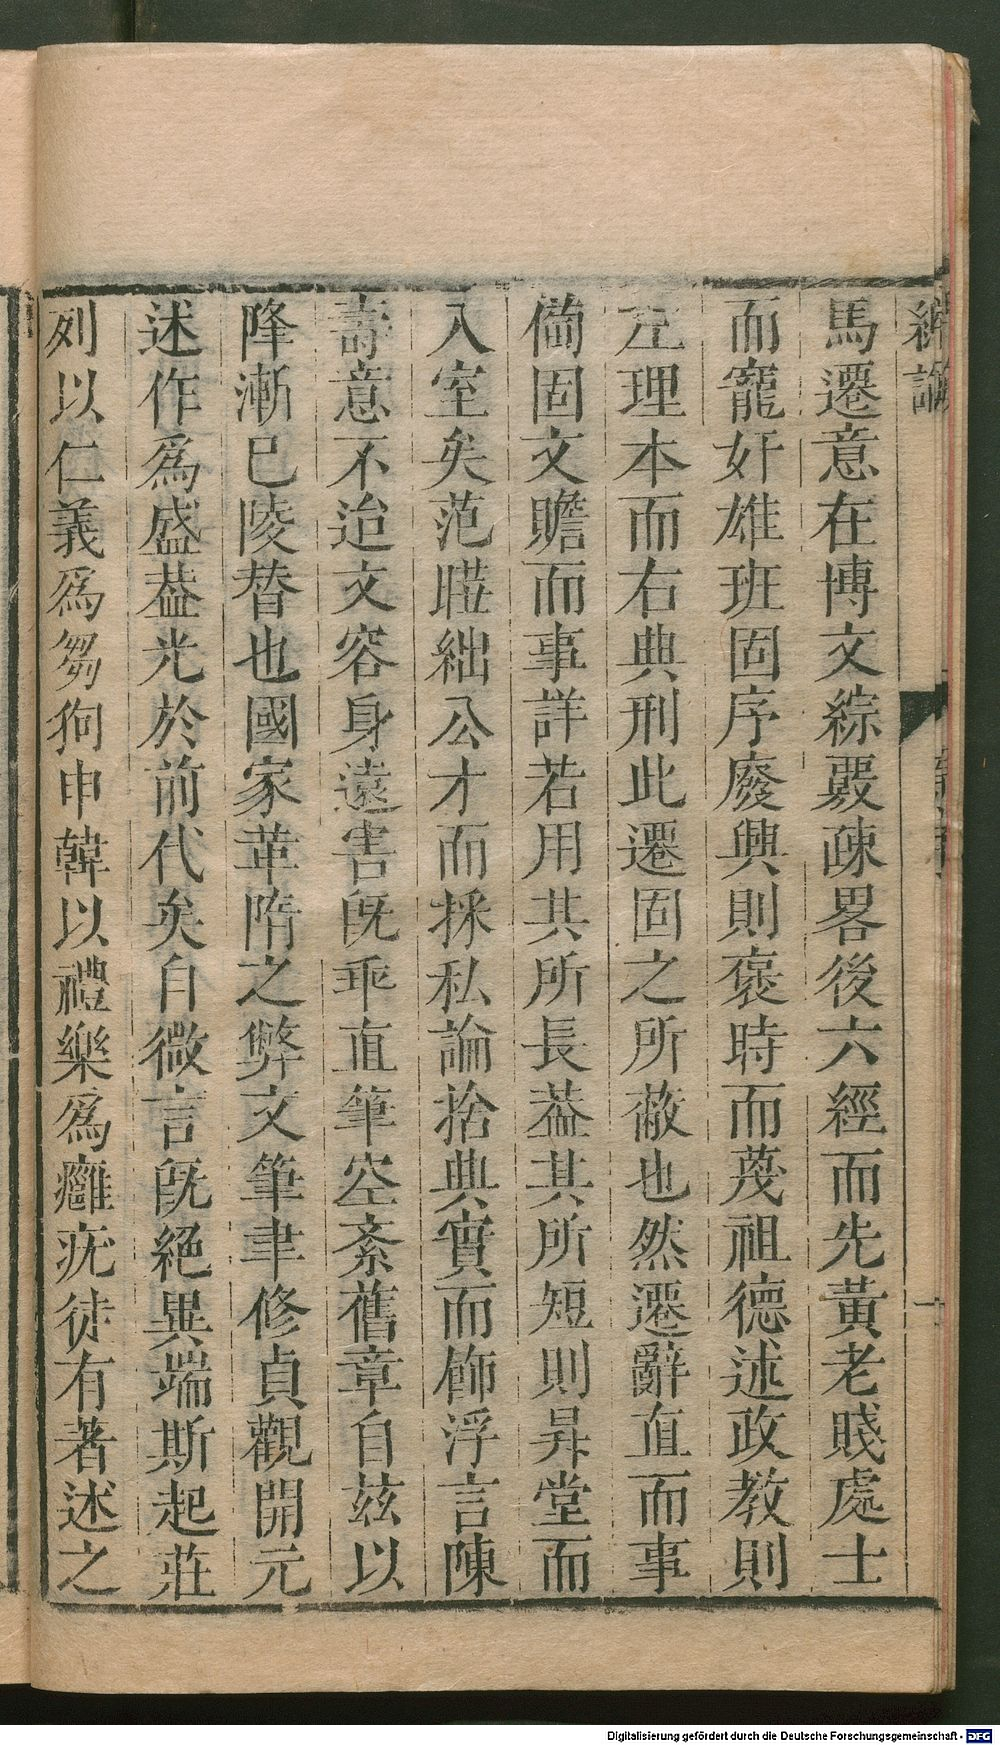 馬遷意在博文綜覈疎畧後六經而先黃老賤處士
而寵奸雄班固序廢興則褒時而蔑祖德述政教則
左理本而右典刑此遷固之所蔽也然遷辭直而事
備固文贍而事詳若用其所長葢其所短則昇堂而
入室矣范曄絀公才而採私論捨典實而飾浮言陳
壽意不迨文容身遠害旣乖直筆空紊舊章自玆以
降漸已陵替也國家革隋之弊文筆聿修貞觀開元
述作爲盛葢光於前代矣自微言旣絕異端斯起莊
列以仁義爲芻狗申韓以禮樂爲癰疣徒有著述之
Digitalisierung gefördert durch die Deutsche Forschungsgemeinschaft - DFG